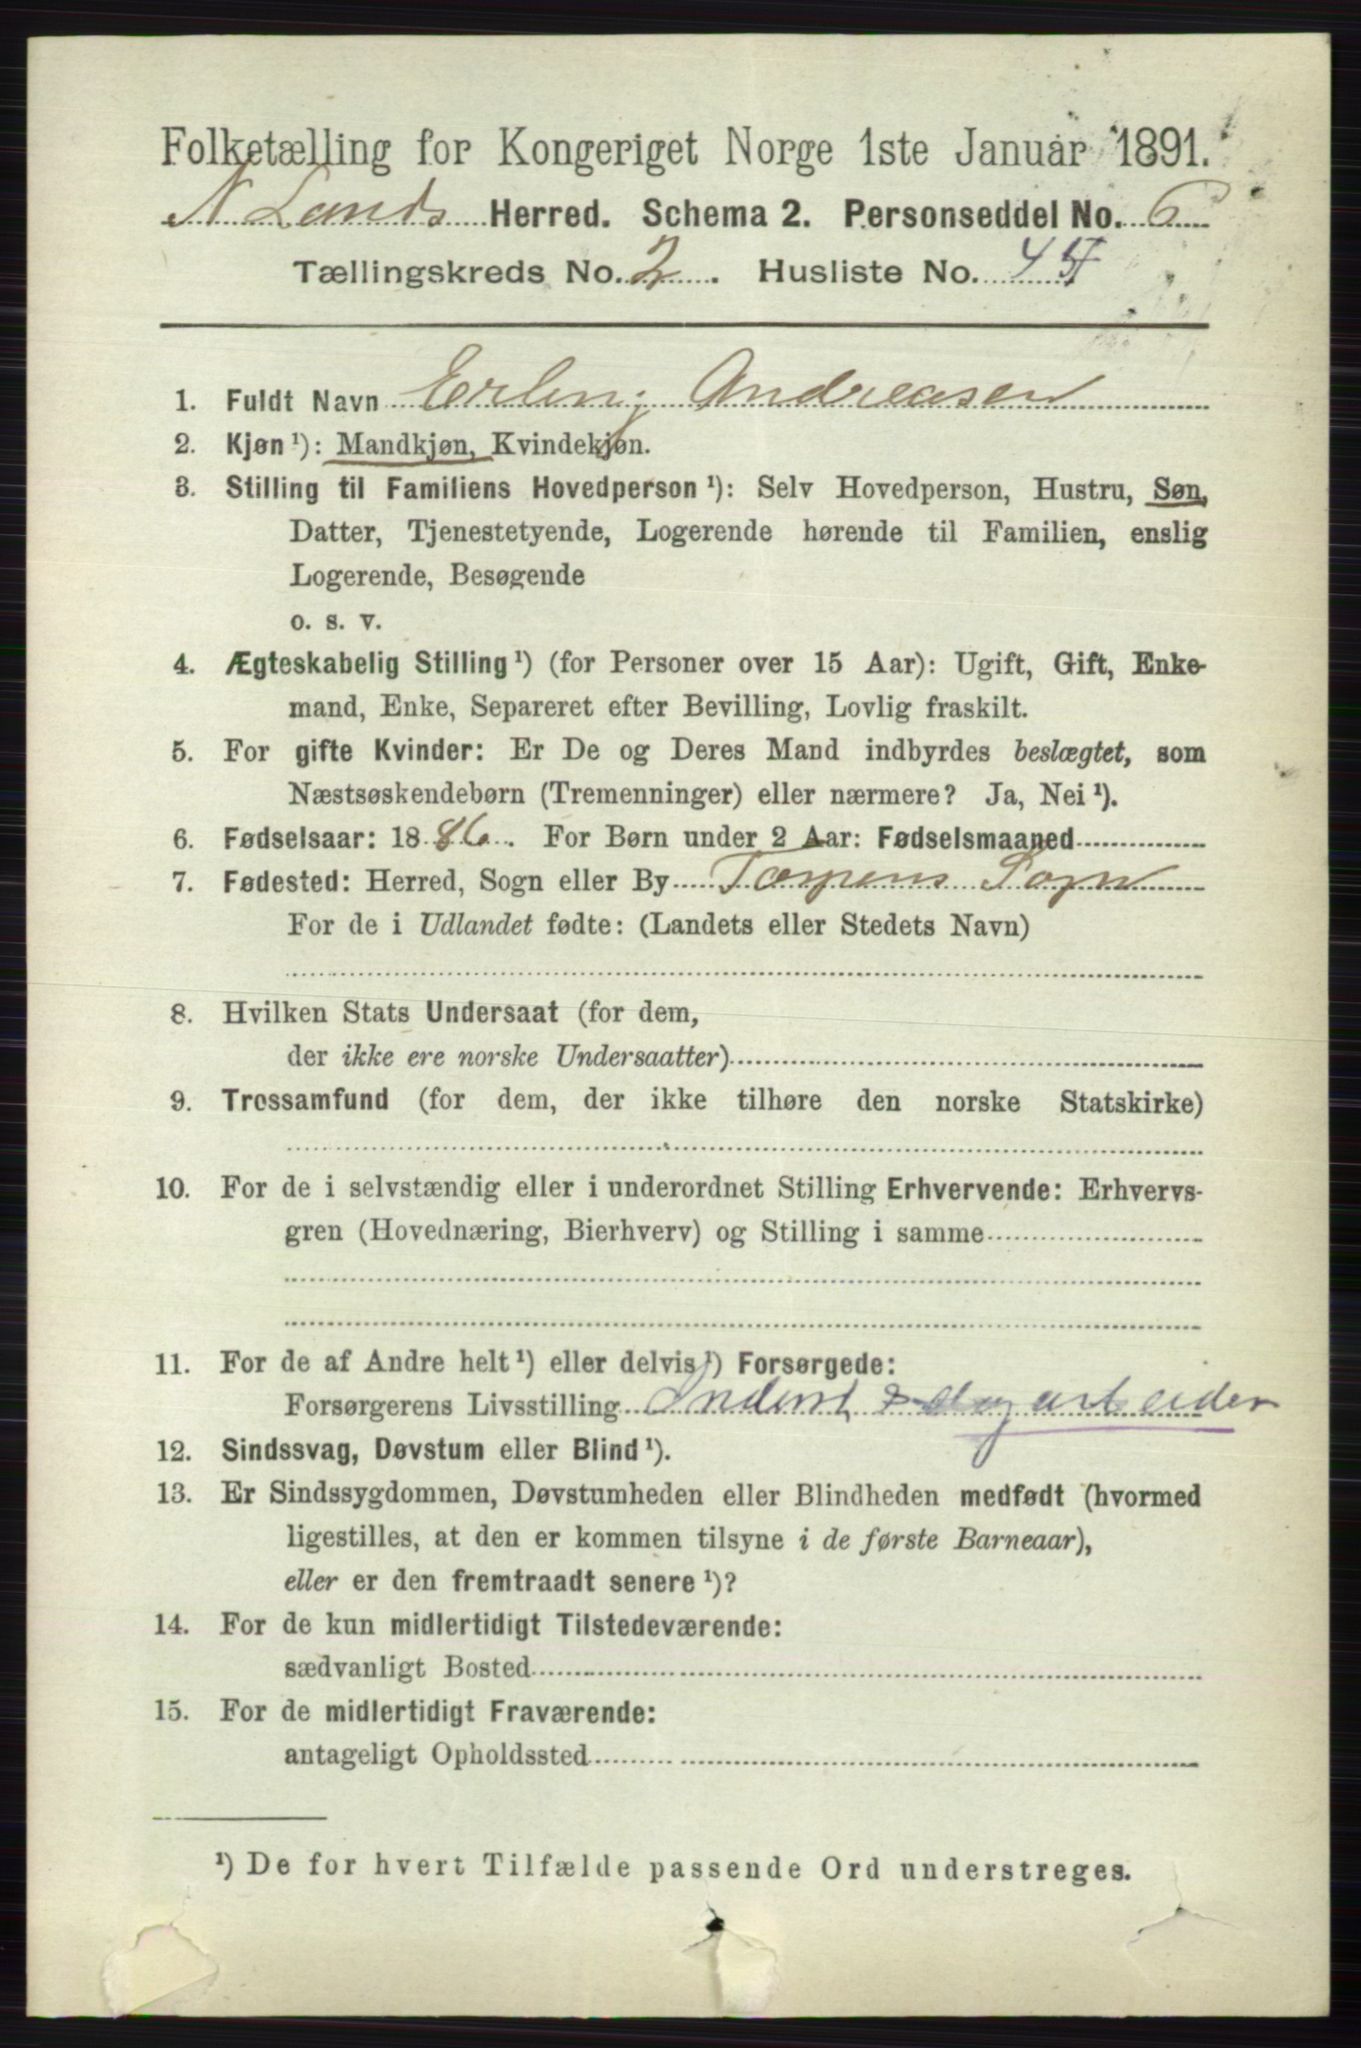 Folketælling for Kongeriget Norge 1ste Januar 1891.
N Lands Herred. Schema 2. Personseddel No. 6
Tællingskreds No. 2. Husliste No. 45
1. Fuldt Navn Erling Andreasen
2. Kjøn ¹): Mandkjøn, Kvindekjøn.
3. Stilling til Familiens Hovedperson ¹): Selv Hovedperson, Hustru, Søn,
Datter, Tjenestetyende, Logerende hørende til Familien, enslig
Logerende, Besøgende
o. s. v.
4. Ægteskabelig Stilling ¹) (for Personer over 15 Aar): Ugift, Gift, Enke-
mand, Enke, Separeret efter Bevilling, Lovlig fraskilt.
5. For gifte Kvinder: Er De og Deres Mand indbyrdes beslægtet, som
Næstsøskendebørn (Tremenninger) eller nærmere? Ja, Nei ¹).
6. Fødselsaar: 1886. For Børn under 2 Aar: Fødselsmaaned
7. Fødested: Herred, Sogn eller By Torpens Sogn
For de i Udlandet fødte: (Landets eller Stedets Navn)
8. Hvilken Stats Undersaat (for dem,
der ikke ere norske Undersaatter)
9. Trossamfund (for dem, der ikke tilhøre den norske Statskirke)
10. For de i selvstændig eller i underordnet Stilling Erhvervende: Erhvervs-
gren (Hovednæring, Bierhverv) og Stilling i samme
11. For de af Andre helt ¹) eller delvis ¹) Forsørgede:
Forsørgerens Livsstilling Inderst & dagarbeider
12. Sindssvag, Døvstum eller Blind ¹).
13. Er Sindssygdommen, Døvstumheden eller Blindheden medfødt (hvormed
ligestilles, at den er kommen tilsyne i de første Barneaar),
eller er den fremtraadt senere ¹)?
14. For de kun midlertidigt Tilstedeværende:
sædvanligt Bosted
15. For de midlertidigt Fraværende:
antageligt Opholdssted
¹) De for hvert Tilfælde passende Ord understreges.